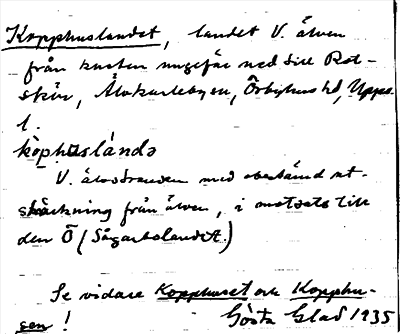 Kopphuslandet, landet V. älven
från kusten ungefär ned till Rot-
skär, Älvkarleby sn, Örbyhus hd, Upps.
l.
kòphuslánda
V. älvstranden med obestämd ut-
sträckning från älven, i motsats till
den Ö (Sågarbolandet.)
Se vidare Kopphuset och Kopphu-
sen! Gösta Glad 1935